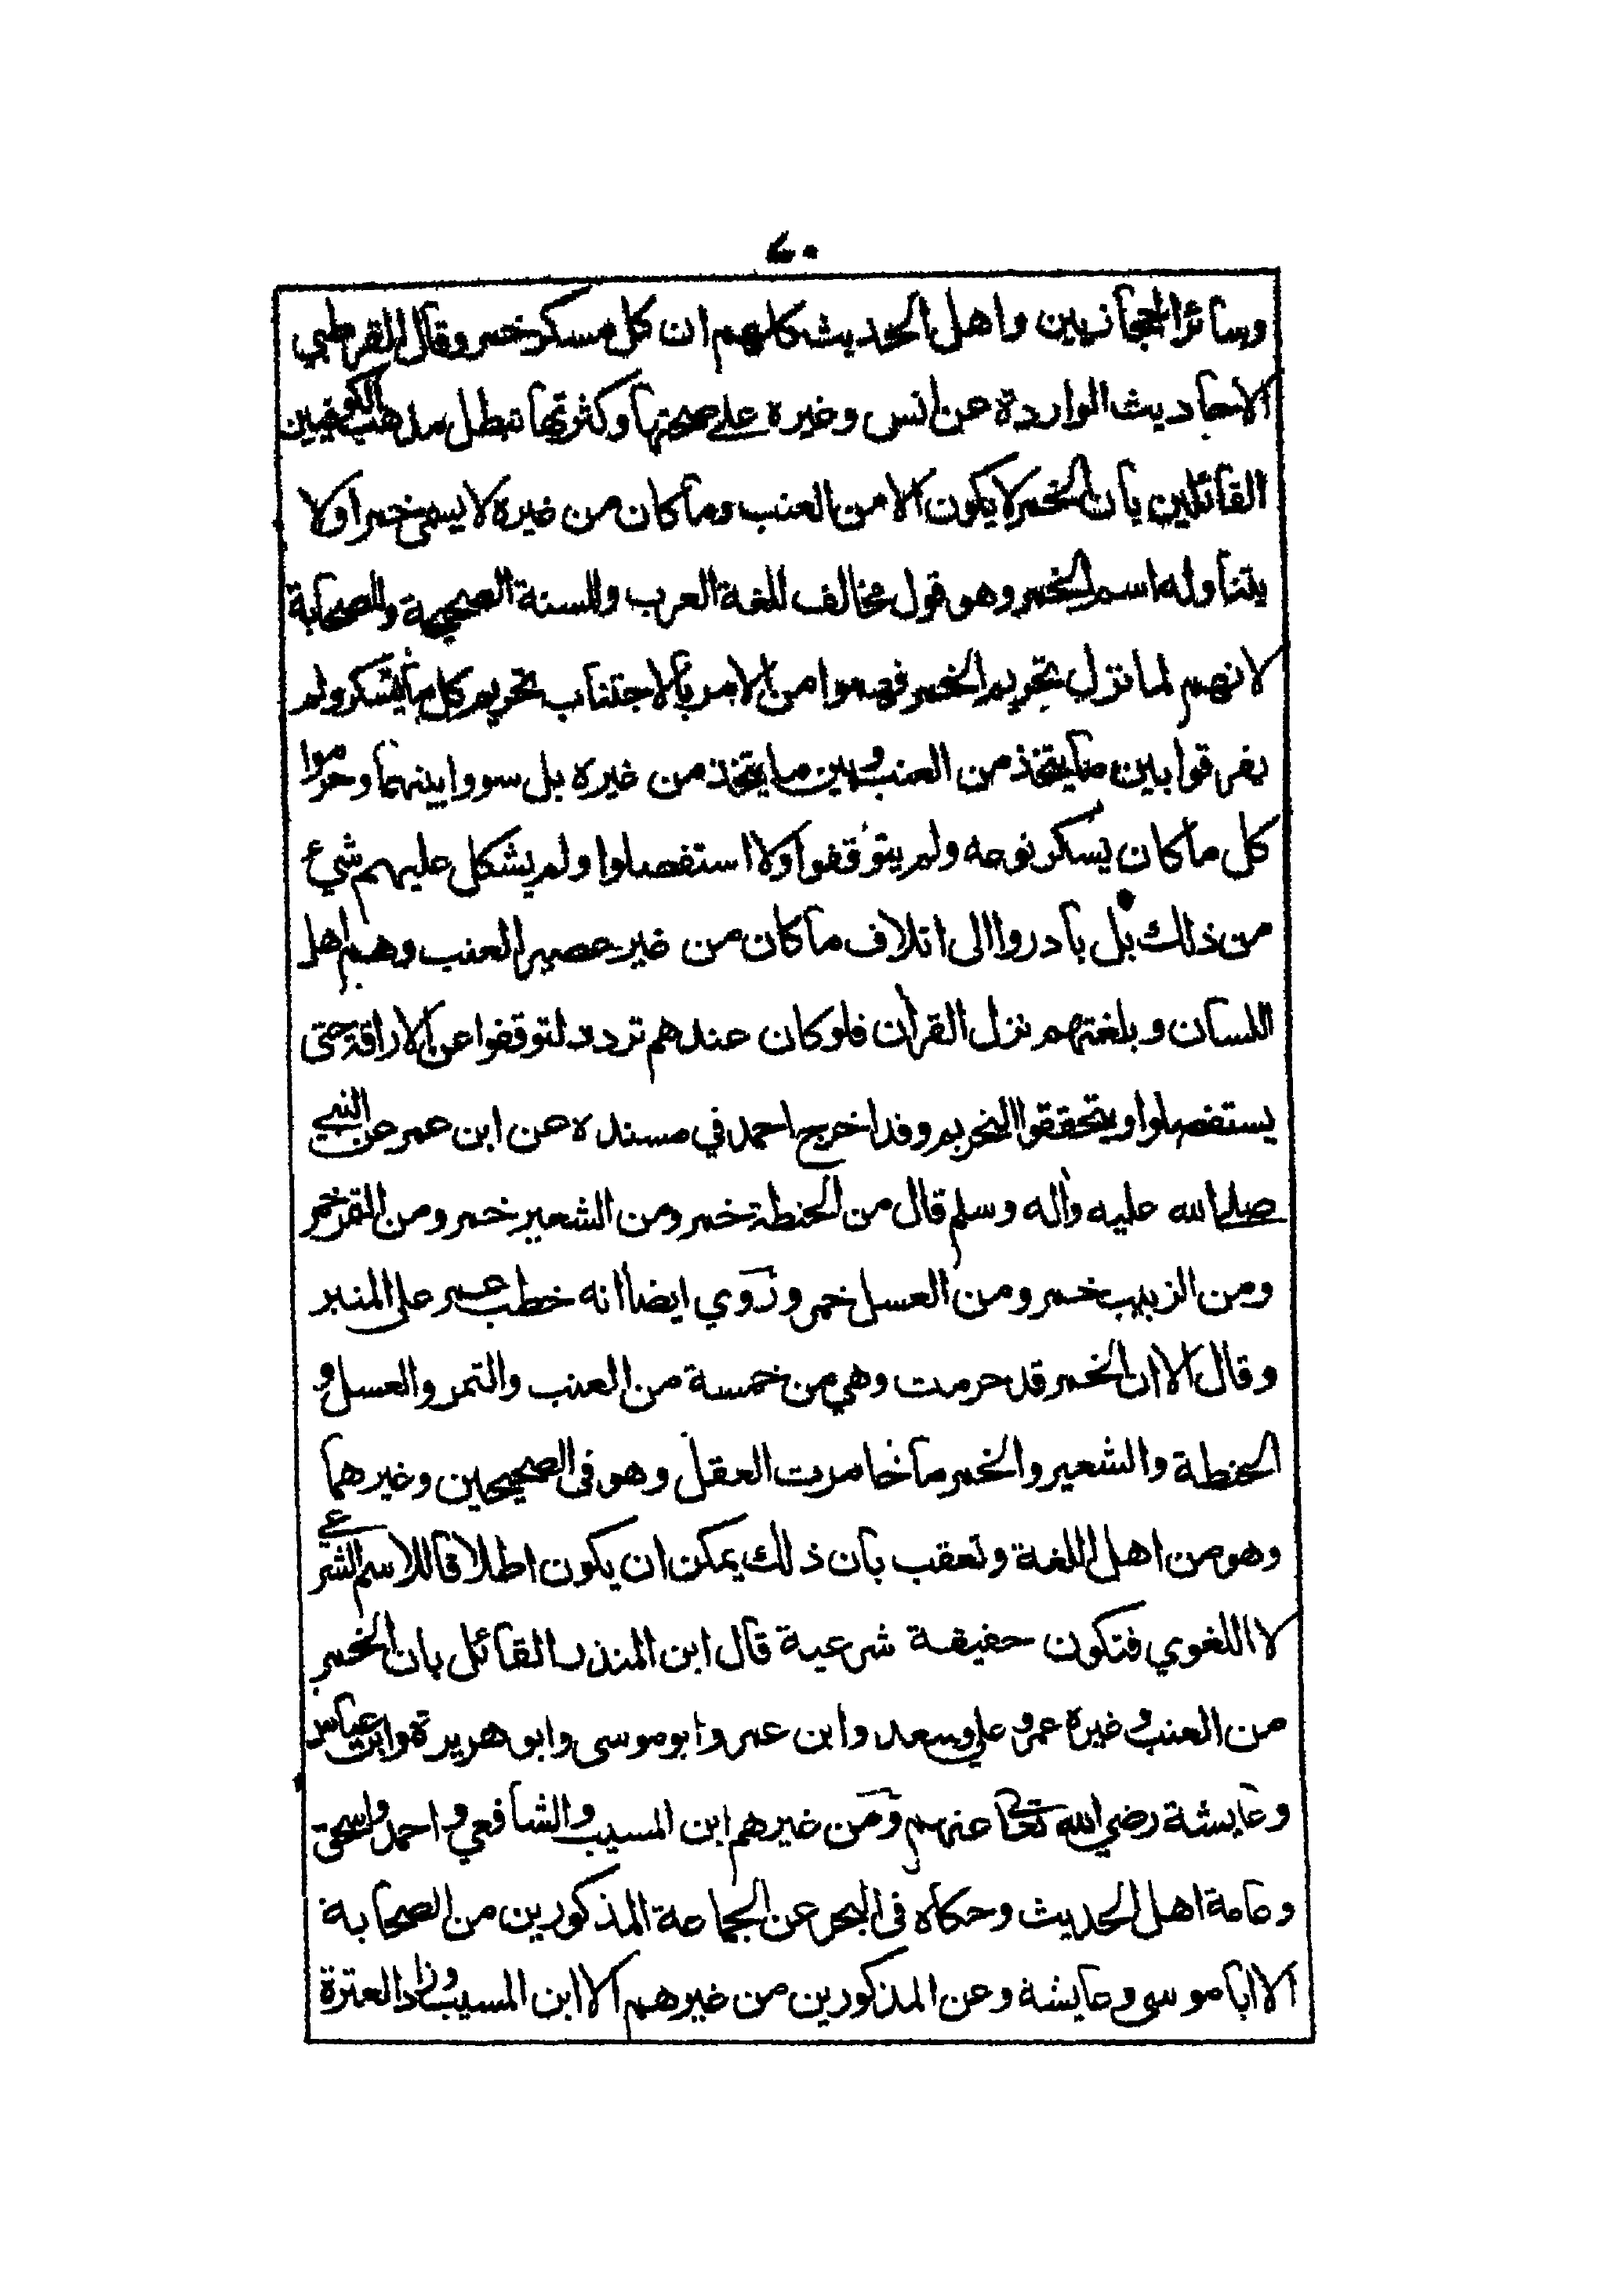 ٤٠
وسائر الحجازيين واهل الحديث كلهم ان كل مسكر خمر وقال القرطبي
الاحاديث الواردة عن انس وغيره على صحتها وكثرتها تبطل مذهب الكوفيين
القائلين بان الخمر لا يكون الا من العنب وما كان من غيره لا يسمى خمرا ولا
يتناوله اسم الخمر وهو قول مخالف للغة العرب وللسنة الصحيحة وللصحابة
لانهم لما نزل تحريم الخمر فهموا من الامر بالاجتناب تحريم كل ما يسكر ولم
يفرقوا بين ما يتخذ من العنب وبين ما يتخذ من غيره بل سووا بينهما وحرموا
كل ما كان يسكر نوعه ولم يتوقفوا ولا استفصلوا ولم يشكل عليهم شيء
من ذلك بل بادروا الى اتلاف ما كان من غير عصير العنب وهم اهل
اللسان وبلغتهم نزل القرآن فلو كان عندهم تردد لتوقفوا عن الاراقة حتى
يستفصلوا ويتحققوا التحريم وقد اخرج احمد في مسنده عن ابن عمر عن النبي
صلى الله عليه وآله وسلم قال من الحنطة خمر ومن الشعير خمر ومن التمر خمر
ومن الزبيب خمر ومن العسل خمر وروي ايضا انه خطب عمر على المنبر
وقال الا ان الخمر قد حرمت وهي من خمسة من العنب والتمر والعسل و
الحنطة والشعير والخمر ما خامرت العقل وهو في الصحيحين وغيرهما
وهو من اهل اللغة وتعقب بان ذلك يمكن ان يكون اطلاقا للاسم الشرعي
لا اللغوي فتكون حقيقة شرعية قال ابن المنذر القائل بان الخمر
من العنب وغيره عمر وعلي وسعد وابن عمر وابو موسى وابو هريرة وابن عباس
وعايشة رضي الله تعالى عنهم ومن غيرهم ابن المسيب والشافعي واحمد واسحق
وعامة اهل الحديث وحكاه في البحر عن الجماعة المذكورين من الصحابة
الا ابا موسى وعايشة وعن المذكورين من غيرهم الا ابن المسيب وزاد العترة